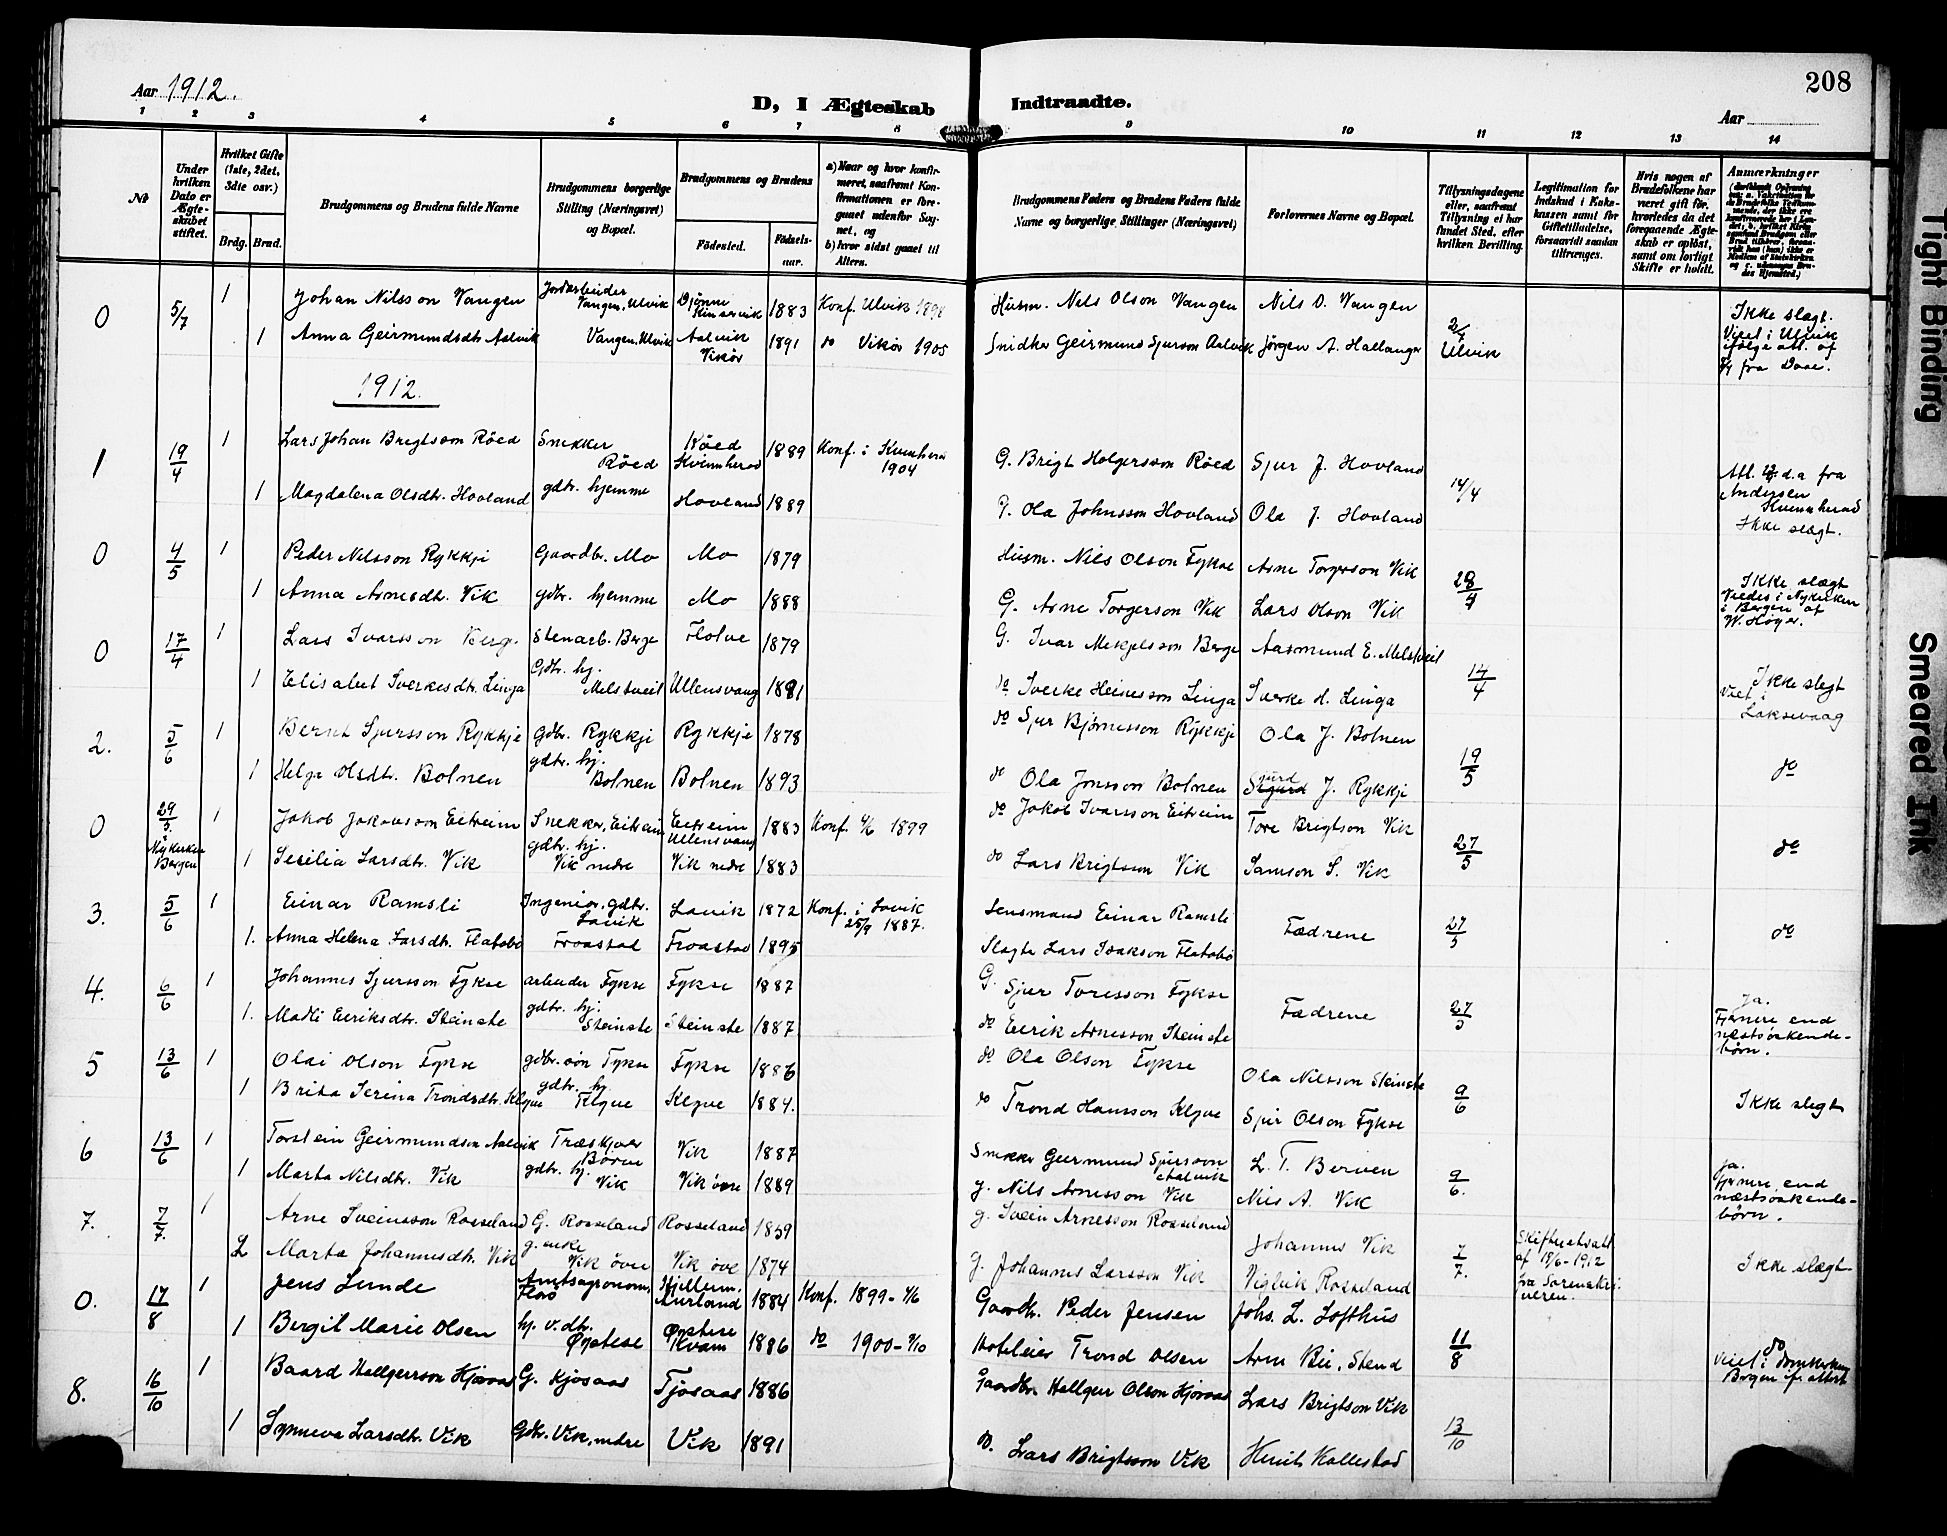 208
Aar 1912.
D, I Ægteskab Indtraadte.
Aar
1 2 3 4 5 6 7 8 9 10 11 12 13 14
№
Under hvilken Dato er Ægte-skabet stiftet.
Hvilket Gifte (1ste, 2det, 3die osv.)
Brdg. Brud.
Brudgommens og Brudens fulde Navne
Brudgommens borgerlige Stilling (Næringsvei) og Bopæl.
Brudgommens og Brudens
Fødested.
Fødsels-aar.
a) Naar og hvor konfir-meret, saafremt Kon-firmationen er fore-gaaet udenfor Sog-net, og
b) hvor sidst gaaet til Alters.
Brudgommens Faders og Brudens Faders fulde Navne og borgerlige Stillinger (Næringsvei)
Forlovernes Navne og Bopæl.
Tillysningsdagene eller, saafremt Tillysning ei har fundet Sted, efter hvilken Bevilling.
Legitimation for Indskud i Enke-kassen samt for Giftetilladelse, forsaavidt saadan tiltrænges.
Hvis nogen af Brudefolkene har været gift før, hvorledes da det foregaaende Ægte-skab er opløst, samt om lovligt Skifte er holdt.
Anmærkninger
0 5/7 1 Johan Nilsson Vangen Jordarbeider Vangen, Ulvik Djønne Kinservik 1883 Konf. Ulvik 1898 Husm. Nils Olson Vangen Nils O. Vangen Ikke slægt.
1 Anna Geirmundsdtr Aalvik Vangen, Ulvik Aalvik Vikør 1891 do Vikør 1905 Snidker Geirmund Sjurson Aalvik Jørgen A. Hallanger Ulvik Viet i Ulvik ifølge att. af fra Daae.
1912.
1 19/4 1 Lars Johan Brigtsson Røed Snekker Røed Røed Kvinnherad 1889 Konf. i Kvinnherad 1904 G. Brigt Holgersson Røed Sjur J. Hovland 14/4 Att. d.a fra Andersen Kvinnherad
1 Magdalena Olsdtr. Hovland gdtr. hjemme Hovland 1889 Ola Johnsson Hovland Ola J. Hovland Ikke slægt.
0 4/5 1 Peder Nilsson Rykkji Gaardbr. Mo Mo 1879 Husm. Nils Olson Fykse Arne Torgerson Vik 28/4 Ikke slægt
1 Anna Arnesdtr. Vik gdtr. hjemme Mo 1888 G. Arne Torgerson Vik Lars Olson Vik Viedes i Nykirken i Bergen af W. Høyer.
0 17/4 1 Lars Ivarsson Berge Stenarb. Berge Flolve 1879 G. Ivar Mikjelsson Berge Aasmund E. Melstveit 14/4 Ikke slegt
1 Elisabet Sverkesdtr. Linga Gdtr. hj. Melstveit Ullensvang 1881 do Sverke Heinesson Linga Sverke H. Linga Viet i Laksevaag
2. 5/6 1 Bernt Sjursson Rykkje gdbr. Rykkji Rykkje 1878 do Sjur Bjørnesson Rykkji Ola J. Bolnen 19/5 do
1 Helga Olsdtr. Bolnen gdtr. hj. Bolnen Bolnen 1893 do Ola Jonsson Bolnen Sjurd J. Rykkji
0 29/5. Nykirken Bergen 1 Jakob Jakobsson Eitreim Snekker, Eitreim Eitreim Ullensvang 1883 Konf. 1899 do Jakob Ivarsson Eitreim Tore Brigtson Vik 27/5 do
1 Sesilia Larsdtr. Vik gdtr. hj. Vik nedre Vik nedre 1883 do Lars Brigtson Vik Samson S. Vik
3. 5/6 1 Einar Ramsli Ingeniør, gdbr. Lavik Lavik 1872 Konf. i Lavik 25/9 1887. Lensmand Einar Ramsli Fædrene 27/5 do
1. Anna Helena Larsdtr. Flatabø Froastad Froastad 1895 Slagter Lars Isakson Flatabø
4. 6/6 1 Johannes Sjursson Fykse arbeider Fykse Fykse 1887 G. Sjur Toresson Fykse Fædrene 27/5 Ja.
1. Madli Eiriksdtr. Steinste gdtr. hj. Steinste Steinste 1887 do Eirik Arnesson Steinste Fjernere end næstsøskende-børn.
5 13/6 1 Olai Olson Fykse gdbr. søn Fykse Fykse 1886 do Ola Olson Fykse Ola Nilsson Steinste 9/6 Ikke slegt
1 Brita Serina Trondsdtr. Klyve gdtr. hj. Klyve Klyve 1884. do Trond Hansson Klyve Sjur Olson Fykse
6 13/6 1 Torstein Geirmundson Aalvik Træskjærer Børve Vik 1887 Snekker Geirmund Sjursson Aalvik L. T. Berven 9/6. Ja.
1 Marta Nilsdtr. Vik gdtr. hj. Vik Vik øvre 1889 g. Nils Arnesson Vik Nils A. Vik Fjernere end næstsøskende-børn.
7. 7/7. 1 Arne Sveinsson Rosseland G. Rosseland Rosseland 1859 g. Svein Arnesson Rosseland Johannes Vik 7/7. Skifteattest af 18/6-1912 fra Sorenskri-veren. Ikke slægt
2 Marta Johannesdtr. Vik g. enke Vik øvre Vik øvre 1874 g. Johannes Larsson Vik Vigleik Rosseland
0. 17/8 1 Jens Lunde Amtsagronom, Florø Aurland 1884 Konf. 1899 - Gaardbr. Peder Jensen Johs. L. Lofthus 11/8 do
1 Bergit Marie Olsen hj. v. dtr. Øystese Øystese Kvam 1886 do 1900 - Hoteleier Trond Olsen Arne Stend Viet i Domkirken Bergen
8. 16/10 1 Baard Hallgerrson Kjosaas G. Kjosaas Tjosaas 1886 Gaardbr. Hallgeir Olson Kjosaas Lars Brigtson Vik 13/10
1 Synneva Larsdtr. Vik Gdtr. Vik, nedre Vik 1891 do. Lars Brigtsson Vik Kallestad
Tight Binding
Smeared Ink